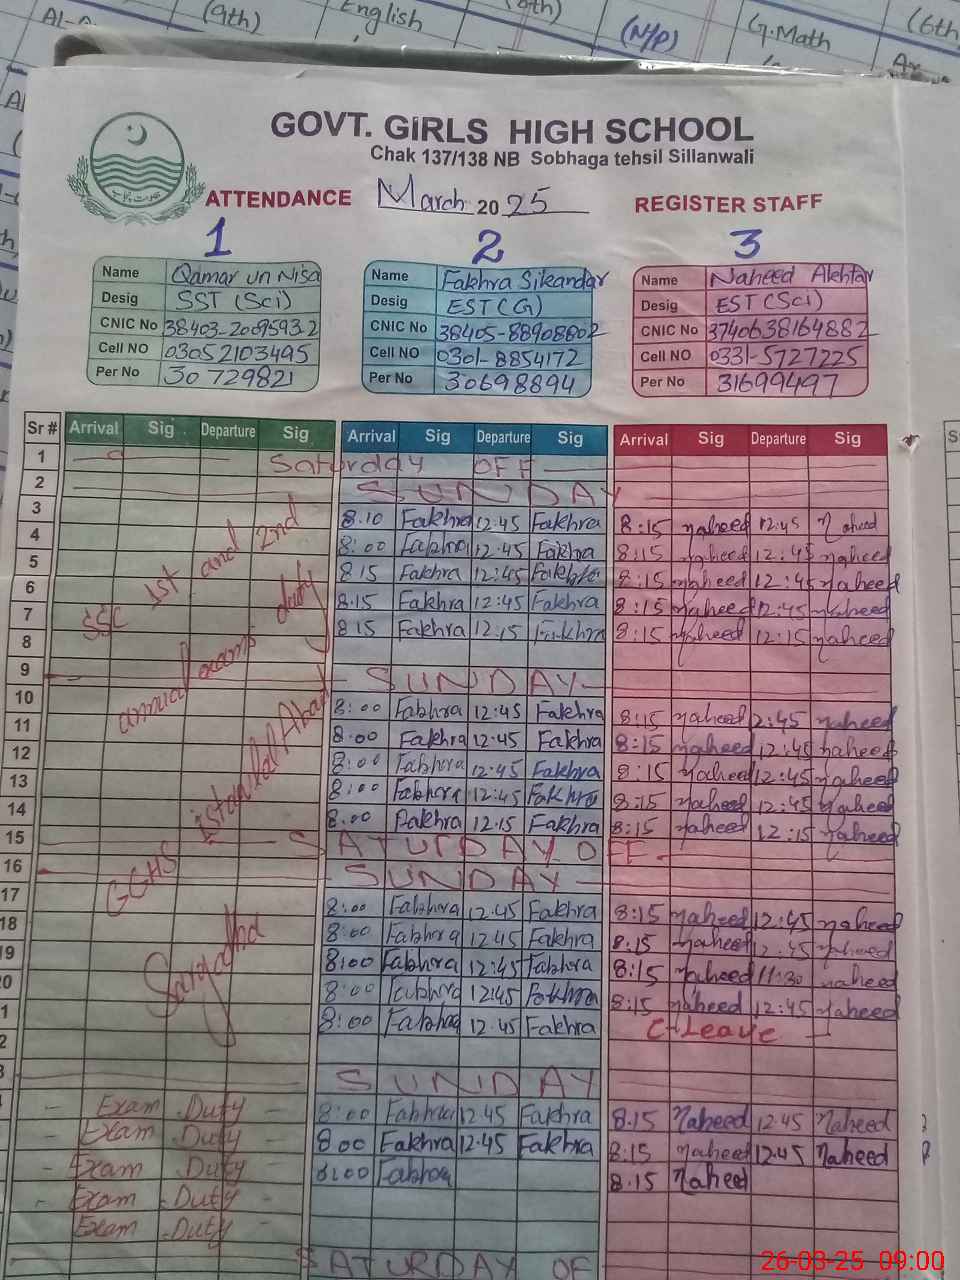 (9th) English (8th) (N/P) G.Math (6th
GOVT. GIRLS HIGH SCHOOL
Chak 137/138 NB Sobhaga tehsil Sillanwali
ATTENDANCE March 2025 REGISTER STAFF
1 2 3
Name Qamar un Nisa Name Fakhra Sikandar Name Naheed Akhtar
Desig SST (Sci) Desig EST (G) Desig EST (Sci)
CNIC No 38403-2009593-2 CNIC No 38405-8890880-2 CNIC No 3740638164882
Cell NO 03052103495 Cell NO 0301-8854172 Cell NO 0331-5727225
Per No 30729821 Per No 30698894 Per No 31699497
Sr # Arrival Sig Departure Sig Arrival Sig Departure Sig Arrival Sig Departure Sig
1 Saturday OFF
2 SUNDAY
3 8.10 Fakhra 12:45 Fakhra 8:15 naheed 12:45 Naheed
4 8:00 Fakhra 12:45 Fakhra 8:15 naheed 12:45 naheed
5 8 15 Fakhra 12:45 Fakhra 8:15 naheed 12:45 naheed
6 8.15 Fakhra 12:45 Fakhra 8:15 naheed 12:45 naheed
7 8 15 Fakhra 12:15 Fakhra 8:15 naheed 12:15 naheed
8
9 SUNDAY
10 8:00 Fabhra 12:45 Fakhra 8:15 naheed 2:45 naheed
11 8:00 Fakhra 12:45 Fakhra 8:15 naheed 12:45 naheed
12 8:00 Fabhra 12:45 Fakhra 8:15 naheed 12:45 naheed
13 8:00 Fabhra 12:45 Fakhra 8:15 naheed 12:45 naheed
14 8.00 Fakhra 12.15 Fakhra 8:15 naheed 12:15 naheed
15 SATURDAY OFF
16 SUNDAY
17 8:00 Fabhra 12.45 Fakhra 8:15 naheed 12:45 naheed
18 8:00 Fabhra 12 45 Fakhra 8:15 naheed 12:45 naheed
19 8:00 Fabhra 12:45 Fabhra 8:15 naheed 11:30 naheed
20 8:00 Fabhra 12:45 Fakhra 8:15 naheed 12:45 naheed
1 8:00 Fabhra 12.45 Fakhra C-Leave
2
3 SUNDAY
Exam Duty 8:00 Fabhra 12.45 Fakhra 8.15 Naheed 12.45 Naheed
Exam Duty 8 00 Fakhra 12.45 Fakhra 8:15 naheed 12.45 Naheed
Exam Duty 8:00 Fabhra 8.15 Naheed
Exam Duty
Exam Duty
SATURDAY OF
SSC 1st and 2nd
annual exams duty
GGHS Istaqlal Abad
Sargodha
26-03-25 09:00